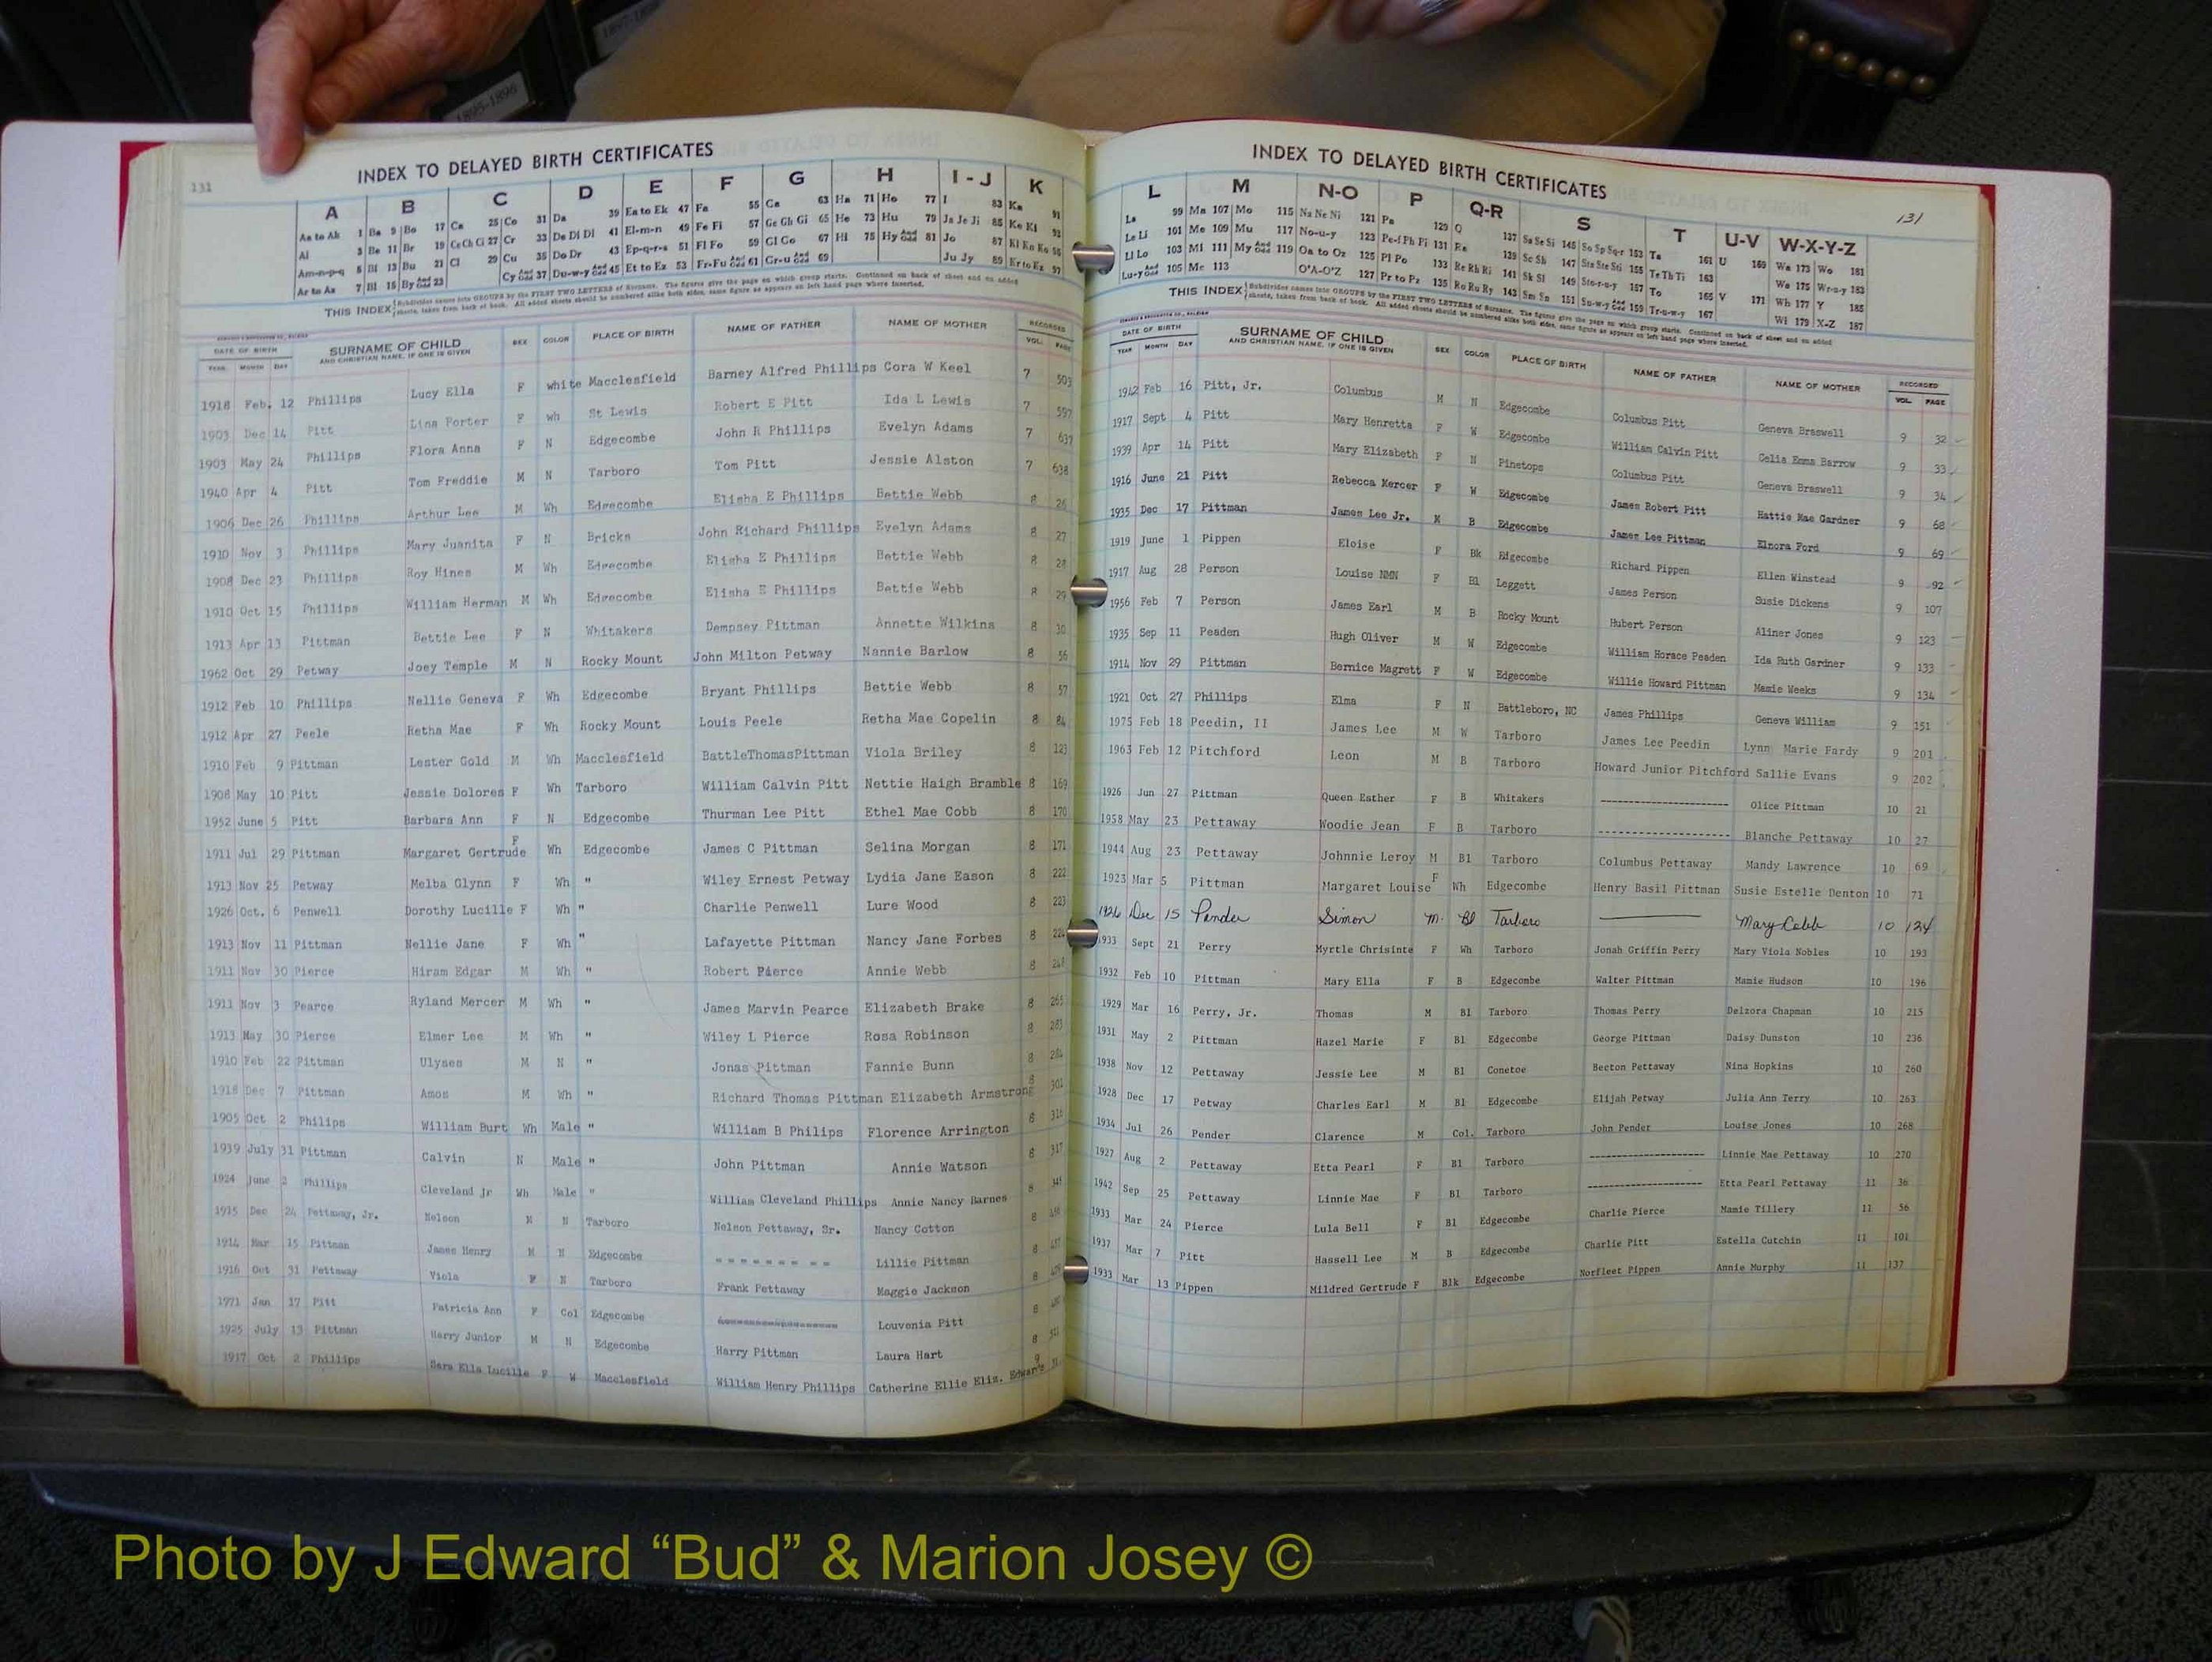 1897-189
1895-1896
131
INDEX TO DELAYED BIRTH CERTIFICATES
A B C D E F G H I-J K
Aa to Ak 1 Ba 9 Bo 17 Ca 25 Co 31 Da 39 Ea to Ek 47 Fa 55 Ga 63 Ha 71 Ho 77 I 83 Ka 91
Al 3 Be 11 Br 19 Ce Ch Ci 27 Cr 33 De Di Dl 41 El-m-n 49 Fe Fi 57 Ge Gh Gi 65 He 73 Hu 79 Ja Je Ji 85 Ke Ki
Am-n-p-q 5 Bi 13 Bu 21 Cl 29 Cu 35 Do Dr 43 Ep-q-r-s 51 Fl Fo 59 Gl Go 67 Hi 75 Hy And Odd 81 Jo 87 Kl Kn Ko
Ar to Az 7 Bl 15 By And Odd 23 Cy And Odd 37 Du-w-y Odd 45 Et to Ez 53 Fr-Fu And Odd 61 Gr-u And Odd 69 Ju Jy 89 Kr to Kz 97
THIS INDEX Subdivides names into GROUPS by the FIRST TWO LETTERS of Surname. The figures give the page on which group starts. Continued on back of sheet and on added
sheets, taken from back of book. All added sheets should be numbered alike both sides, same figure as appears on left hand page where inserted.
DATE OF BIRTH SURNAME OF CHILD SEX COLOR PLACE OF BIRTH NAME OF FATHER NAME OF MOTHER RECORDED
YEAR MONTH DAY AND CHRISTIAN NAME, IF ONE IS GIVEN VOL. PAGE
1918 Feb. 12 Phillips Lucy Ella F white Macclesfield Barney Alfred Phillips Cora W Keel 7 503
1903 Dec 14 Pitt Lina Porter F wh St Lewis Robert E Pitt Ida L Lewis 7 597
1903 May 24 Phillips Flora Anna F N Edgecombe John R Phillips Evelyn Adams 7 637
1940 Apr 4 Pitt Tom Freddie M N Tarboro Tom Pitt Jessie Alston 7 638
1906 Dec 26 Phillips Arthur Lee M Wh Edgecombe Elisha E Phillips Bettie Webb 8 26
1910 Nov 3 Phillips Mary Juanita F N Bricks John Richard Phillips Evelyn Adams 8 27
1908 Dec 23 Phillips Roy Hines M Wh Edgecombe Elisha E Phillips Bettie Webb 8 28
1910 Oct 15 Phillips William Herman M Wh Edgecombe Elisha E Phillips Bettie Webb 8 29
1913 Apr 13 Pittman Bettie Lee F N Whitakers Dempsey Pittman Annette Wilkins 8 30
1962 Oct 29 Petway Joey Temple M N Rocky Mount John Milton Petway Nannie Barlow 8 56
1912 Feb 10 Phillips Nellie Geneva F Wh Edgecombe Bryant Phillips Bettie Webb 8 57
1912 Apr 27 Peele Retha Mae F Wh Rocky Mount Louis Peele Retha Mae Copelin 8 84
1910 Feb 9 Pittman Lester Gold M Wh Macclesfield BattleThomasPittman Viola Briley 8 123
1908 May 10 Pitt Jessie Dolores F Wh Tarboro William Calvin Pitt Nettie Haigh Bramble 8 169
1952 June 5 Pitt Barbara Ann F N Edgecombe Thurman Lee Pitt Ethel Mae Cobb 8 170
1911 Jul 29 Pittman Margaret Gertrude F Wh Edgecombe James C Pittman Selina Morgan 8 171
1913 Nov 25 Petway Melba Glynn F Wh " Wiley Ernest Petway Lydia Jane Eason 8 222
1926 Oct. 6 Penwell Dorothy Lucille F Wh " Charlie Penwell Lure Wood 8 223
1913 Nov 11 Pittman Nellie Jane F Wh " Lafayette Pittman Nancy Jane Forbes 8
1911 Nov 30 Pierce Hiram Edgar M Wh " Robert Pierce Annie Webb 8
1911 Nov 3 Pearce Ryland Mercer M Wh " James Marvin Pearce Elizabeth Brake 8 265
1913 May 30 Pierce Elmer Lee M Wh " Wiley L Pierce Rosa Robinson 8 283
1910 Feb 22 Pittman Ulyses M N " Jonas Pittman Fannie Bunn 8 284
1918 Dec 7 Pittman Amos M Wh " Richard Thomas Pittman Elizabeth Armstrong 8 302
1905 Oct 2 Philips William Burt Wh Male " William B Philips Florence Arrington 8 316
1939 July 31 Pittman Calvin N Male " John Pittman Annie Watson 8 317
1924 June 2 Phillips Cleveland Jr Wh Male " William Cleveland Phillips Annie Nancy Barnes 8
1915 Dec 24 Pettaway, Jr. Nelson M N Tarboro Nelson Pettaway, Sr. Nancy Cotton 8
1914 Mar 15 Pittman James Henry M N Edgecombe -------- Lillie Pittman 8
1916 Oct 31 Pettaway Viola F N Tarboro Frank Pettaway Maggie Jackson 8
1971 Jan 17 Pitt Patricia Ann F Col Edgecombe ---------------- Louvenia Pitt 8
1925 July 13 Pittman Harry Junior M N Edgecombe Harry Pittman Laura Hart 8
1917 Oct 2 Phillips Sara Ella Lucille F W Macclesfield William Henry Phillips Catherine Ellie Eliz. Edwards 9
INDEX TO DELAYED BIRTH CERTIFICATES
131
L M N-O P Q-R S T U-V W-X-Y-Z
La 99 Ma 107 Mo 115 Na Ne Ni 121 Pa 129 Q 137 Sa Se Si 145 So Sp Sq-r 153 Ta 161 U 169 Wa 173 Wo 181
Le Li 101 Me 109 Mu 117 No-u-y 123 Pe-f Ph Pi 131 Ra 139 Sc Sh 147 Sta Ste Sti 155 Te Th Ti 163 We 175 Wr-u-y 183
Ll Lo 103 Mi 111 My And Odd 119 Oa to Oz 125 Pl Po 133 Re Rh Ri 141 Sk Sl 149 Sto-r-u-y 157 To 165 V 171 Wh 177 Y 185
Lu-y And Odd 105 Mc 113 O'A-O'Z 127 Pr to Pz 135 Ro Ru Ry 143 Sm Sn 151 Su-w-y And Odd 159 Tr-u-w-y 167 Wi 179 X-Z 187
THIS INDEX Subdivides names into GROUPS by the FIRST TWO LETTERS of Surname. The figures give the page on which group starts. Continued on back of sheet and on added
sheets, taken from back of book. All added sheets should be numbered alike both sides, same figure as appears on left hand page where inserted.
DATE OF BIRTH SURNAME OF CHILD SEX COLOR PLACE OF BIRTH NAME OF FATHER NAME OF MOTHER RECORDED
YEAR MONTH DAY AND CHRISTIAN NAME, IF ONE IS GIVEN VOL. PAGE
1942 Feb 16 Pitt, Jr. Columbus M N Edgecombe Columbus Pitt Geneva Braswell 9 32
1917 Sept 4 Pitt Mary Henretta F W Edgecombe William Calvin Pitt Celia Emma Barrow 9 33
1939 Apr 14 Pitt Mary Elizabeth F N Pinetops Columbus Pitt Geneva Braswell 9 34
1916 June 21 Pitt Rebecca Mercer F W Edgecombe James Robert Pitt Hattie Mae Gardner 9 68
1935 Dec 17 Pittman James Lee Jr. M B Edgecombe James Lee Pittman Elnora Ford 9 69
1919 June 1 Pippen Eloise F Bk Edgecombe Richard Pippen Ellen Winstead 9 92
1917 Aug 28 Person Louise NMN F Bl Leggett James Person Susie Dickens 9 107
1956 Feb 7 Person James Earl M B Rocky Mount Hubert Person Aliner Jones 9 123
1935 Sep 11 Peaden Hugh Oliver M W Edgecombe William Horace Peaden Ida Ruth Gardner 9 133
1914 Nov 29 Pittman Bernice Magrett F W Edgecombe Willie Howard Pittman Mamie Weeks 9 134
1921 Oct 27 Phillips Elma F N Battleboro, NC James Phillips Geneva William 9 151
1975 Feb 18 Peedin, II James Lee M W Tarboro James Lee Peedin Lynn Marie Fardy 9 201
1963 Feb 12 Pitchford Leon M B Tarboro Howard Junior Pitchford Sallie Evans 9 202
1926 Jun 27 Pittman Queen Esther F B Whitakers -------------------- Olice Pittman 10 21
1958 May 23 Pettaway Woodie Jean F B Tarboro -------------------- Blanche Pettaway 10 27
1944 Aug 23 Pettaway Johnnie Leroy M Bl Tarboro Columbus Pettaway Mandy Lawrence 10 69
1923 Mar 5 Pittman Margaret Louise F Wh Edgecombe Henry Basil Pittman Susie Estelle Denton 10 71
1926 Dec 15 Pender Simon M. Bl Tarboro ——— Mary Cobb 10 124
1933 Sept 21 Perry Myrtle Chrisinte F Wh Tarboro Jonah Griffin Perry Mary Viola Nobles 10 193
1932 Feb 10 Pittman Mary Ella F B Edgecombe Walter Pittman Mamie Hudson 10 196
1929 Mar 16 Perry, Jr. Thomas M Bl Tarboro Thomas Perry Delzora Chapman 10 215
1931 May 2 Pittman Hazel Marie F Bl Edgecombe George Pittman Daisy Dunston 10 236
1938 Nov 12 Pettaway Jessie Lee M Bl Conetoe Becton Pettaway Nina Hopkins 10 260
1928 Dec 17 Petway Charles Earl M Bl Edgecombe Elijah Petway Julia Ann Terry 10 263
1934 Jul 26 Pender Clarence M Col. Tarboro John Pender Louise Jones 10 268
1927 Aug 2 Pettaway Etta Pearl F Bl Tarboro -------------------- Linnie Mae Pettaway 10 270
1942 Sep 25 Pettaway Linnie Mae F Bl Tarboro -------------------- Etta Pearl Pettaway 11 36
1933 Mar 24 Pierce Lula Bell F Bl Edgecombe Charlie Pierce Mamie Tillery 11 56
1937 Mar 7 Pitt Hassell Lee M B Edgecombe Charlie Pitt Estella Cutchin 11 101
1933 Mar 13 Pippen Mildred Gertrude F Blk Edgecombe Norfleet Pippen Annie Murphy 11 137
Photo by J Edward “Bud” & Marion Josey ©